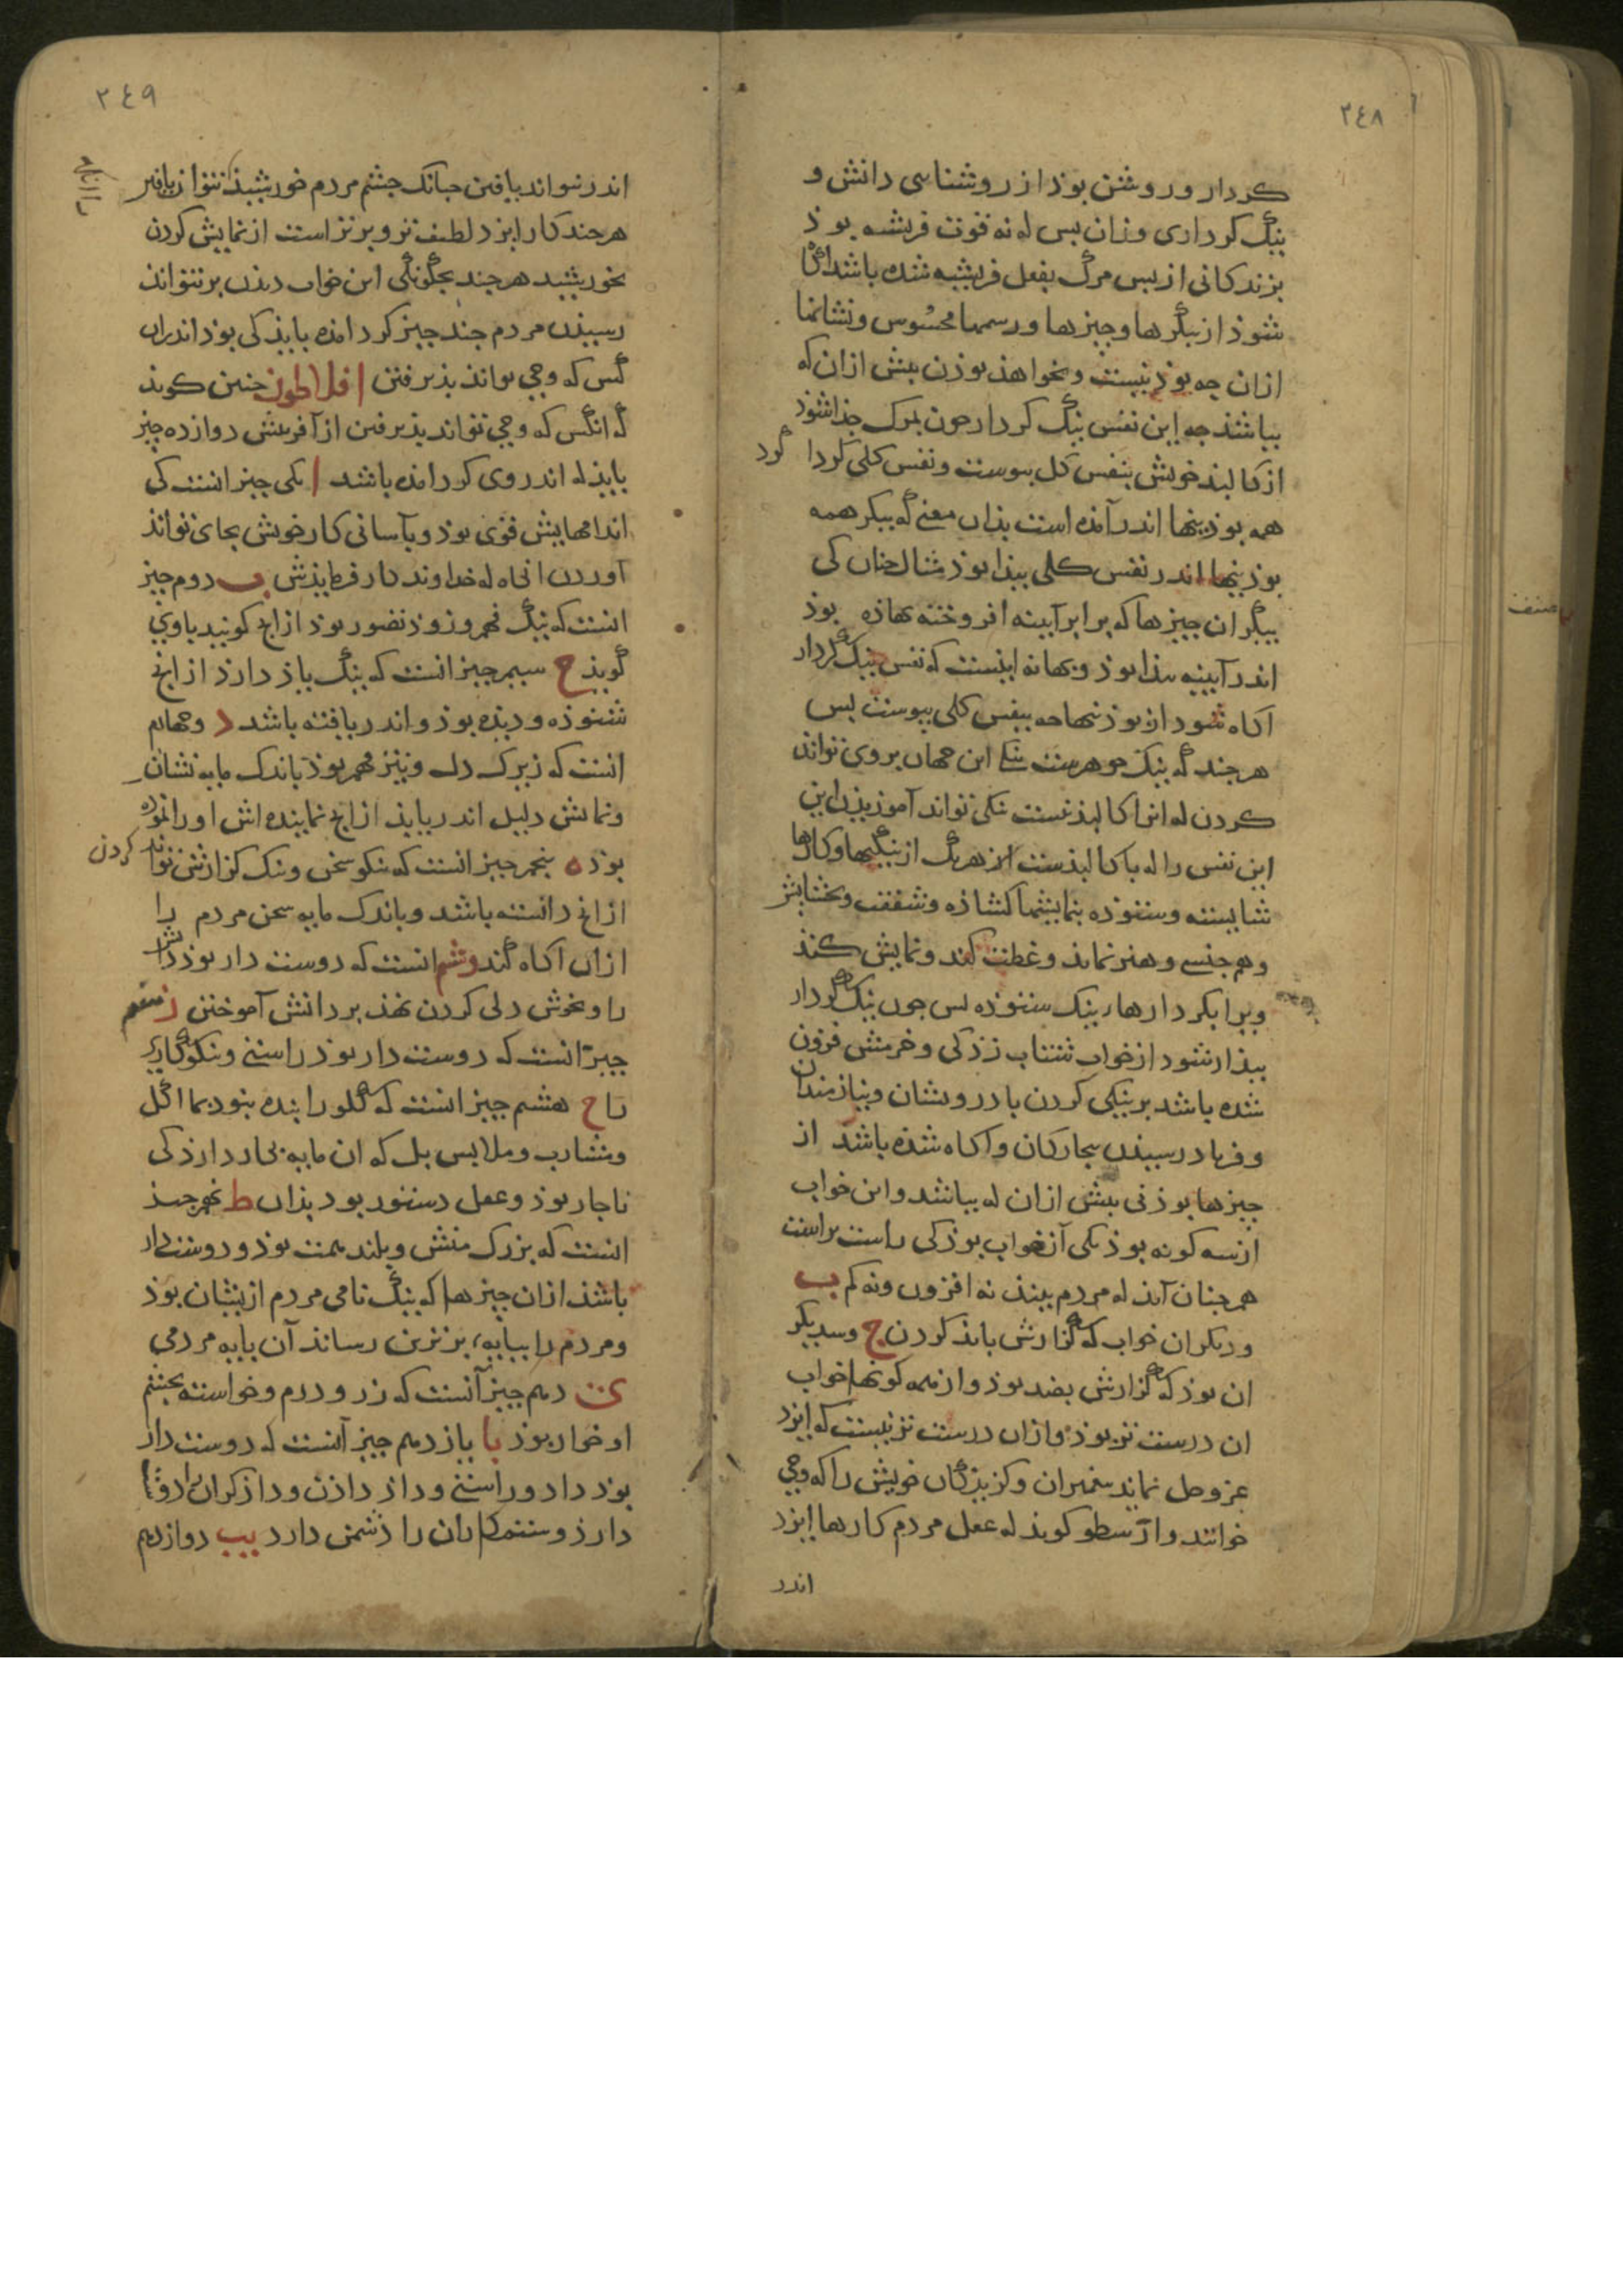 ٢٤٨
كردار و روشن بوذ از روشناسی دانش و
نیک کرداری و زان بس که نه قوت فریشه بوذ
بزندکانی از بس مرک بفعل فریشه شده باشد
شوذ از بیکرها و چیزها و رسمها محسوس و نشانها
ازان چه بوذ نیست و نخواهذ بوذن بیش ازان که
بباشذ چه این نفس نیک کردار چون بمرک جذا شوذ
از کالبذ خویش بنفس کل بیوست و نفس کلی کردا کرد
همه بوذنیها اندر آمذه است بذان معنی که بیکر همه
بوذنیها اندر نفس کلی بیذا بوذ مثال چنان کی
بیکر ان چیزها که برابر آیینه افروخته نهاذه بوذ
اندر آیینه بیذا بوذ و بهانه اینست که نفس نیک کردار
اکاه شود از بوذنیها چه بنفس کلی بیوست بس
هرچند که نیک جوهرست این جهان بروی تواند
کردن که انرا کالبذ نیست نیکی تواند آموزیذن این
این نفس را که با کالبذست از هریک از نیکیها و کارها
شایسته و ستوذه بنمایشها کشاذه و شفقت و بخشایش
و هم جنسی و هنر نماید و غطت کند و نمایش کند
ویرا بکردارهاء نیک ستوذه بس چون نیک کردار
بیذار شود از خواب شتاب زذکی و خرمش فزون
شده باشد بر نیکی کردن با درویشان و نیازمندان
و فریاد رسیذن بیچارکان و آکاه شذه باشذ از
چیزها بوذنی بیش ازان که بباشد و این خواب
از سه کونه بوذ یکی آن خواب بوذ کی راست براست
همچنان آیذ که مردم بیند نه افزون و نه کم ب
و دیکر ان خواب که کزارش باید کردن ج و سدیکر
ان بوذ که کزارش بضد بوذ و از همه کونها خواب
ان درست تر بوذ و ازان درست تر نیست که ایزد
عز و جل نماید بیغمبران و کزیذکان خویش را که وحی
خوانند و ارسطو کویذ که عقل مردم کارها ایزد
اندر
٢٤٩
اندر نتواند یافتن چنانک چشم مردم خورشیذ نتواند یافتن
هرچند کار ایزد لطیف تر و برتر است از نمایش کردن
بخورشید هرچند بچکونکی این خواب دیذن بر نتواند
رسیذن مردم چند چیز کرد امذه بایذ کی بوذ اندران
کس که وحی تواند بذیرفتن افلاطون چنین کویذ
که انکس که وحی تواند بذیرفتن از آفرینش دوازده چیز
بایذ که اندر وی کرد امذه باشد ا یکی چیز انست کی
اندامهایش قوی بوذ و بآسانی کار خویش بجای تواند
آوردن انکاه که خداوند کار فرمایذش ب دوم چیز
انست که نیک فهم و زوذ تصور بوذ از انچ کویند یا وی
کویذ ج سیم چیز انست که نیک باز دارذ از انچ
شنوذه و دیذه بوذ و اندر یافته باشد د و چهارم
انست که زیرک دل و تیز فهم بوذ باندک مایه نشان
و نمایش دلیل اندر یابذ از انچ نماینده اش او را نموده
بوذ ه بنجم چیز انست که نیکو سخن و نیک کزارش تواند کردن
از انچ دانسته باشد و باندک مایه سخن مردم را
ازان آکاه کند و ششم انست که دوست دار بوذ دانش
را و بخوش دلی کردن نهذ بر دانش آموختن ز هفتم
چیز انست که دوست دار بوذ راستی و نیکوکاری
را ح هشتم چیز انست که کلو را بنده نبود بمآکل
و مشارب و ملابس بل که ان مایه بکار دارذ کی
ناچار بوذ و عقل دستور بوذ بذان ط نهم چیز
انست که بزرک منش و بلند همت بوذ و دوست دار
باشذ ازان چیزها که نیک نامی مردم ازیشان بوذ
و مردم را ببایهء برترین رساند آن بایه مردمی
ی دهم چیز آنست که زر و درم و خواسته بچشم
او خوار بوذ یا یازدهم چیز آنست که دوست دار
بوذ داد و راستی و داذ داذن و داذکران را دوست
دارذ و ستمکاران را دشمن دارد یب دوازدهم